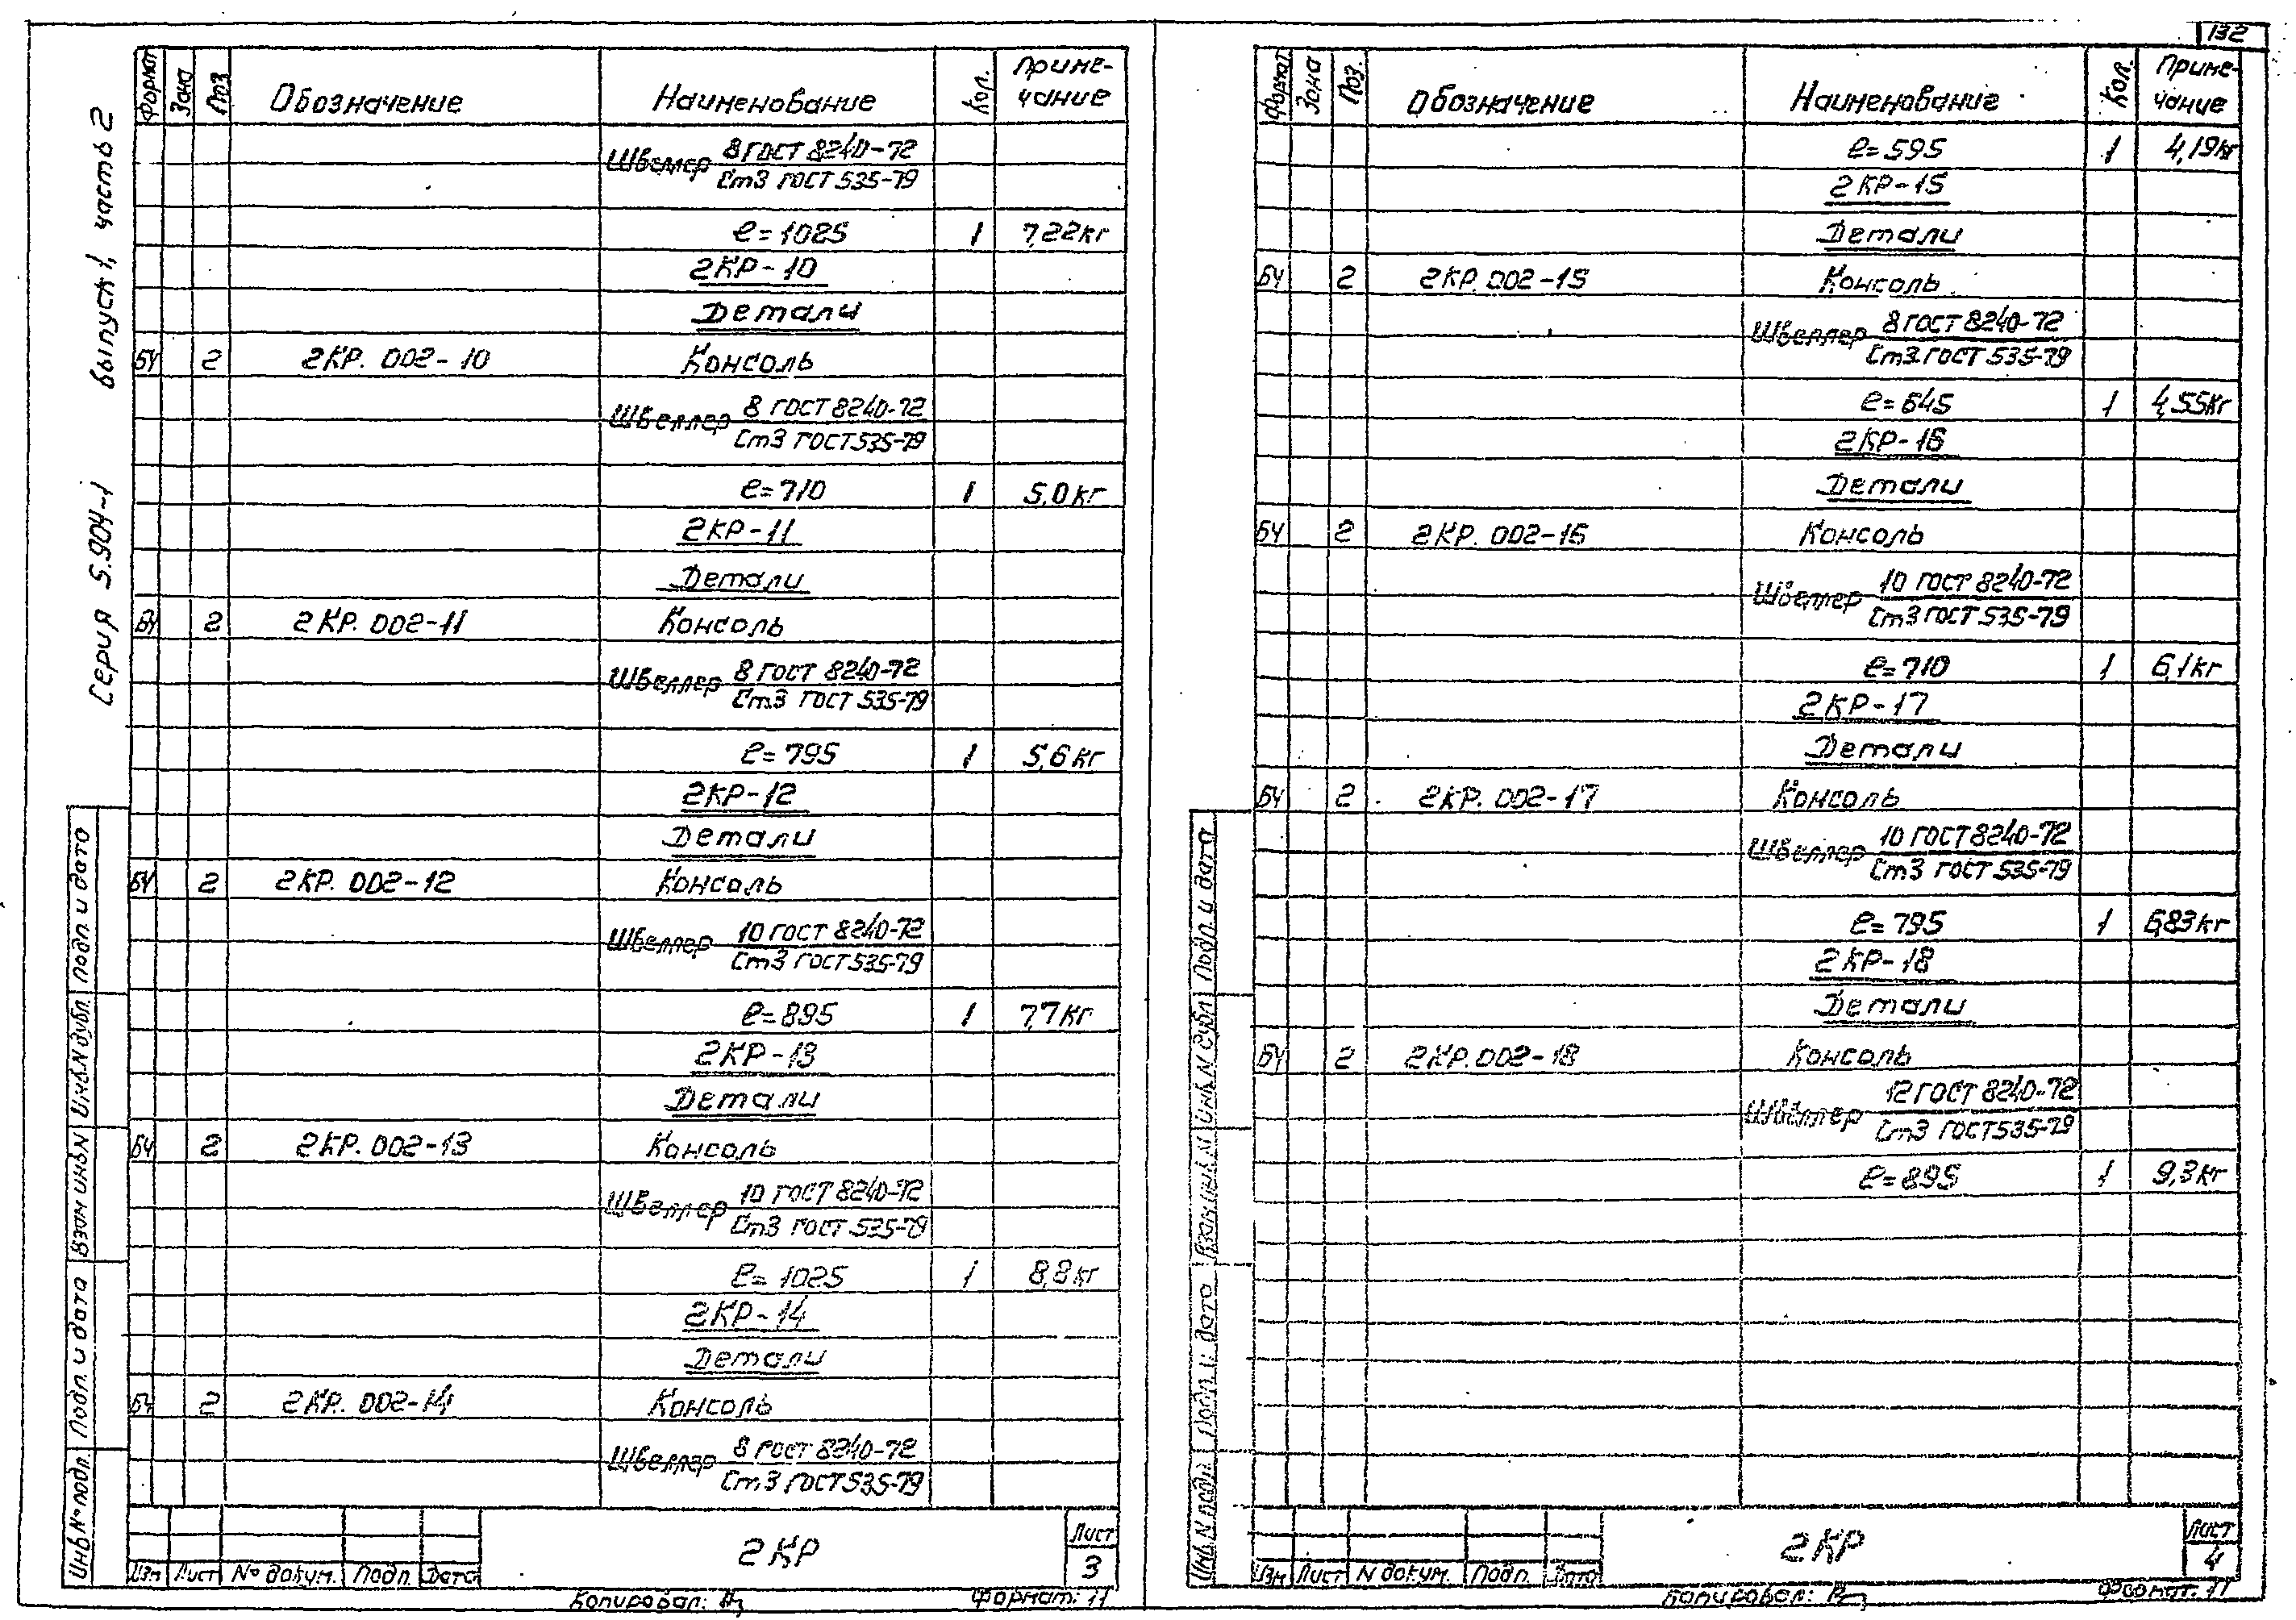 Серия 5.904-1 выпуск 1, часть 2
Формат Зона Поз. Обозначение Наименование Кол. Приме-
чание
Швеллер 8 ГОСТ 8240-72
Ст3 ГОСТ 535-79
ℓ=1025 1 7,22кг
2КР-10
Детали
БЧ 2 2КР. 002-10 Консоль
Швеллер 8 ГОСТ 8240-72
Ст3 ГОСТ 535-79
ℓ=710 1 5,0кг
2КР-11
Детали
БЧ 2 2КР. 002-11 Консоль
Швеллер 8 ГОСТ 8240-72
Ст3 ГОСТ 535-79
ℓ=795 1 5,6кг
2КР-12
Детали
БЧ 2 2КР. 002-12 Консоль
Швеллер 10 ГОСТ 8240-72
Ст3 ГОСТ 535-79
ℓ=895 1 7,7кг
2КР-13
Детали
БЧ 2 2КР. 002-13 Консоль
Швеллер 10 ГОСТ 8240-72
Ст3 ГОСТ 535-79
ℓ=1025 1 8,8кг
2КР-14
Детали
БЧ 2 2КР. 002-14 Консоль
Швеллер 8 ГОСТ 8240-72
Ст3 ГОСТ 535-79
Инв.№ подл. Подп. и дата Взам инв.N Инв.N дубл. Подп. и дата
Изм Лист № докум. Подп. Дата
2КР
Лист
3
Копировал:
Формат: 11
132
Формат Зона Поз. Обозначение Наименование Кол. Приме-
чание
ℓ=595 1 4,19кг
2КР-15
Детали
БЧ 2 2КР. 002-15 Консоль
Швеллер 8 ГОСТ 8240-72
Ст3 ГОСТ 535-79
ℓ=645 1 4,55кг
2КР-16
Детали
БЧ 2 2КР. 002-16 Консоль
Швеллер 10 ГОСТ 8240-72
Ст3 ГОСТ 535-79
ℓ=710 1 6,1кг
2КР-17
Детали
БЧ 2 2КР. 002-17 Консоль
Швеллер 10 ГОСТ 8240-72
Ст3 ГОСТ 535-79
ℓ=795 1 6,83кг
2КР-18
Детали
БЧ 2 2КР. 002-18 Консоль
Швеллер 12 ГОСТ 8240-72
Ст3 ГОСТ 535-79
ℓ=895 1 9,3кг
Инв.N подл. Подп. и дата Взам инв.N Инв.N дубл. Подп. и дата
Изм Лист N докум. Подп. Дата
2КР
Лист
4
Копировал:
Формат: 11